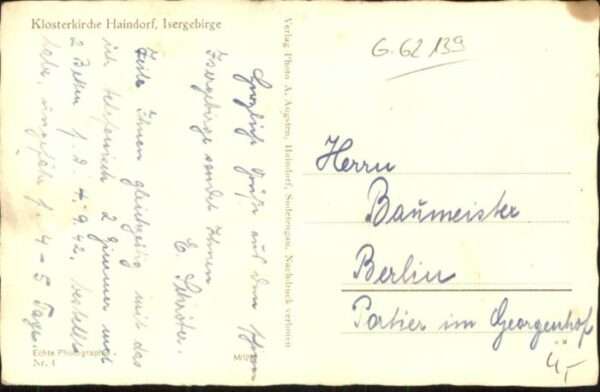 Klosterkirche Haindorf, Isergebirge
Herzliche Grüße aus dem schönen
Isergebirge sendet Ihnen
E. Schröter.
Teile Ihnen gleichzeitig mit das
ich telefonisch 2 Zimmer mit
2 Betten f. d. 4.9.42. bestellt
habe, ungefähr f. 4-5 Tage.
Echte Photographie
Nr. 4
Verlag Photo A. Augsten, Haindorf, Sudetengau, Nachdruck verboten
G.62139
Herrn
Baumeister
Berlin
Portier im Georgenhof
4,-